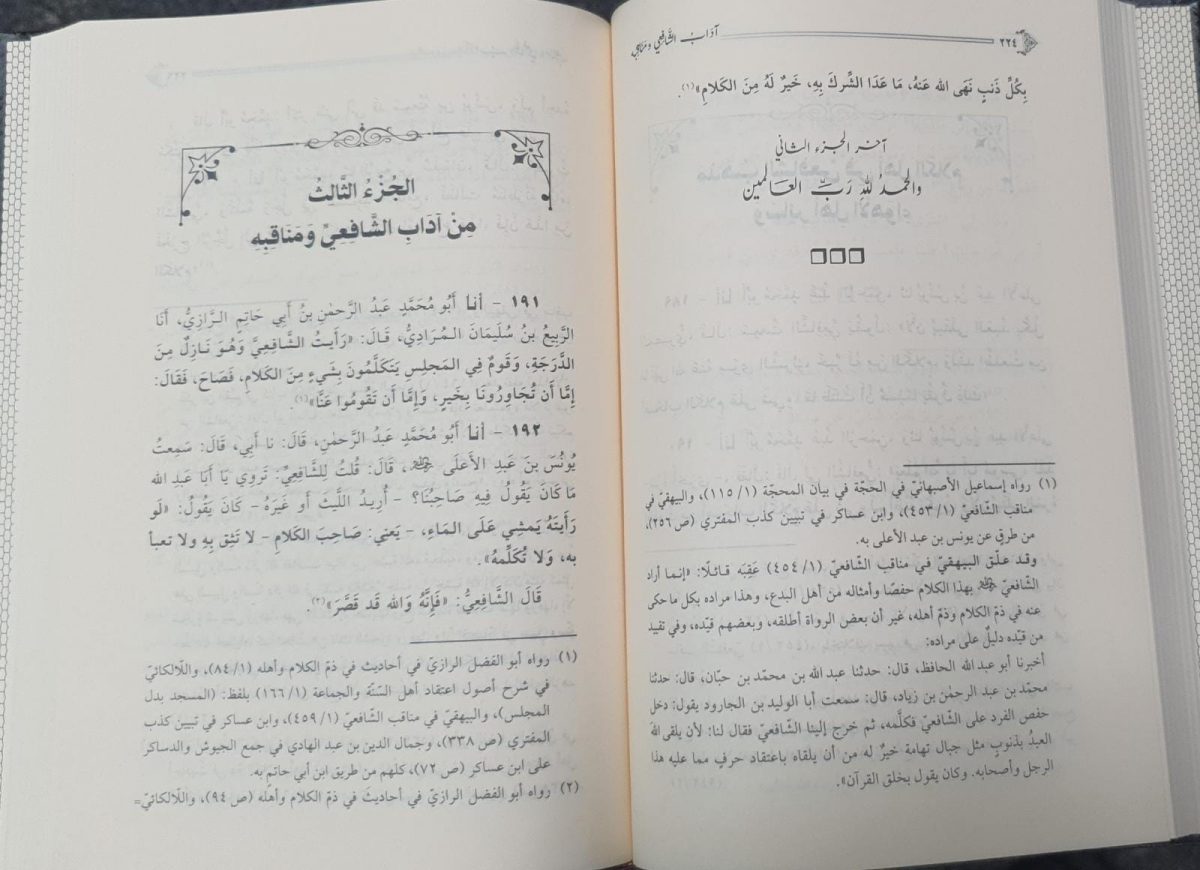 ٢٢٤
آدَابُ الشَّافِعِيِّ وَمَنَاقِبُهُ
بِكُلِّ ذَنبٍ نَهَى الله عَنهُ، مَا عَدَا الشِّركَ بِهِ، خَيرٌ لَهُ مِنَ الكَلَامِ»(١).
آخر الجزء الثاني
والحمدُ للهِ رَبِّ العَالمين
(١) رواه إسماعيل الأصبهانيّ في الحجّة في بيان المحجّة (١/ ١١٥)، والبيهقيّ في
مناقب الشّافعيّ (١/ ٤٥٣)، وابن عساكر في تبيين كذب المفتري (ص ٢٥٦)،
من طرقٍ عن يونس بن عبد الأعلى به.
وقد علّق البيهقيّ في مناقب الشّافعيّ (١/ ٤٥٤) عَقِبَه قائلًا: «إنما أراد
الشّافعيّ ﵁ بهذا الكلام حفصًا وأمثاله من أهل البدع، وهذا مراده بكل ما حكى
عنه في ذمّ الكلام وذمّ أهله، غير أن بعض الرواة أطلقه، وبعضهم قيّده، وفي تقيد
من قيّده دليلٌ على مراده:
أخبرنا أبو عبد الله الحافظ، قال: حدثنا عبد الله بن محمّد بن حبّان، قال: حدثنا
محمّد بن عبد الرحمٰن بن زياد، قال: سمعت أبا الوليد بن الجارود يقول: دخل
حفص الفرد على الشّافعيّ فكلّمه، ثم خرج إلينا الشّافعيّ فقال لنا: لأن يلقى اللهَ
العبدُ بذنوبٍ مثل جبال تهامة خيرٌ له من أن يلقاه باعتقاد حرفٍ مما عليه هذا
الرجل وأصحابه. وكان يقول بخلق القرآن».
الجُزْءُ الثَّالِثُ
مِنْ آدَابِ الشَّافِعِيِّ وَمَنَاقِبِهِ
١٩١ - أنا أَبُو مُحَمَّدٍ عَبدُ الرَّحمٰنِ بنُ أَبِي حَاتِمٍ الرَّازِيُّ، أَنَا
الرَّبِيعُ بنُ سُلَيمَانَ المُرَادِيُّ، قَالَ: «رَأَيتُ الشَّافِعِيَّ وَهُوَ نَازِلٌ مِنَ
الدَّرَجَةِ، وَقَومٌ فِي المَجلِسِ يَتَكَلَّمُونَ بِشَيءٍ مِنَ الكَلَامِ، فَصَاحَ، فَقَالَ:
إِمَّا أَن تُجَاوِرُونَا بِخَيرٍ، وَإِمَّا أَن تَقُومُوا عَنَّا»(١).
١٩٢ - أنا أَبُو مُحَمَّدٍ عَبدُ الرَّحمٰنِ، قَالَ: نا أَبِي، قَالَ: سَمِعتُ
يُونُسَ بنَ عَبدِ الأَعلَى ﵁، قَالَ: قُلتُ لِلشَّافِعِيِّ: تَروِي يَا أَبَا عَبدِ الله
مَا كَانَ يَقُولُ فِيهِ صَاحِبُنَا؟ - أُرِيدُ اللَّيثَ أَو غَيرَهُ - كَانَ يَقُولُ: «لَو
رَأَيتَهُ يَمشِي عَلَى المَاءِ، - يَعنِي: صَاحِبَ الكَلَامِ - لَا تَثِق بِهِ وَلَا تعبأ
به، وَلَا تُكَلِّمهُ».
قَالَ الشَّافِعِيُّ: «فَإِنَّهُ وَالله قَد قَصَّرَ»(٢).
(١) رواه أبو الفضل الرازيّ في أحاديث في ذمّ الكلام وأهله (١/ ٨٤)، واللّالكائيّ
في شرح أصول اعتقاد أهل السّنّة والجماعة (١/ ١٦٦) بلفظ: (المسجد بدل
المجلس)، والبيهقيّ في مناقب الشّافعيّ (١/ ٤٥٩)، وابن عساكر في تبيين كذب
المفتري (ص ٣٣٨)، وجمال الدين بن عبد الهادي في جمع الجيوش والدساكر
على ابن عساكر (ص ٧٢)، كلهم من طريق ابن أبي حاتم به.
(٢) رواه أبو الفضل الرازيّ في أحاديث في ذمّ الكلام وأهله (ص ٩٤)، واللّالكائيّ=